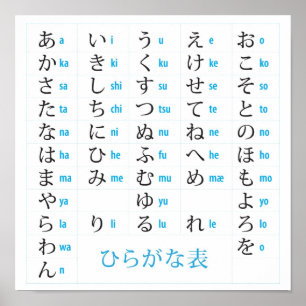 あ a い i う u え e お o
か ka き ki く ku け ke こ ko
さ sa し shi す su せ se そ so
た ta ち chi つ tsu て te と to
な na に ni ぬ nu ね ne の no
は ha ひ he ふ fu へ he ほ ho
ま ma み me む mu め mæ も mo
や ya ゆ yu よ yo
ら la り li る lu れ le ろ lo
わ wa を o
ん n
ひらがな表